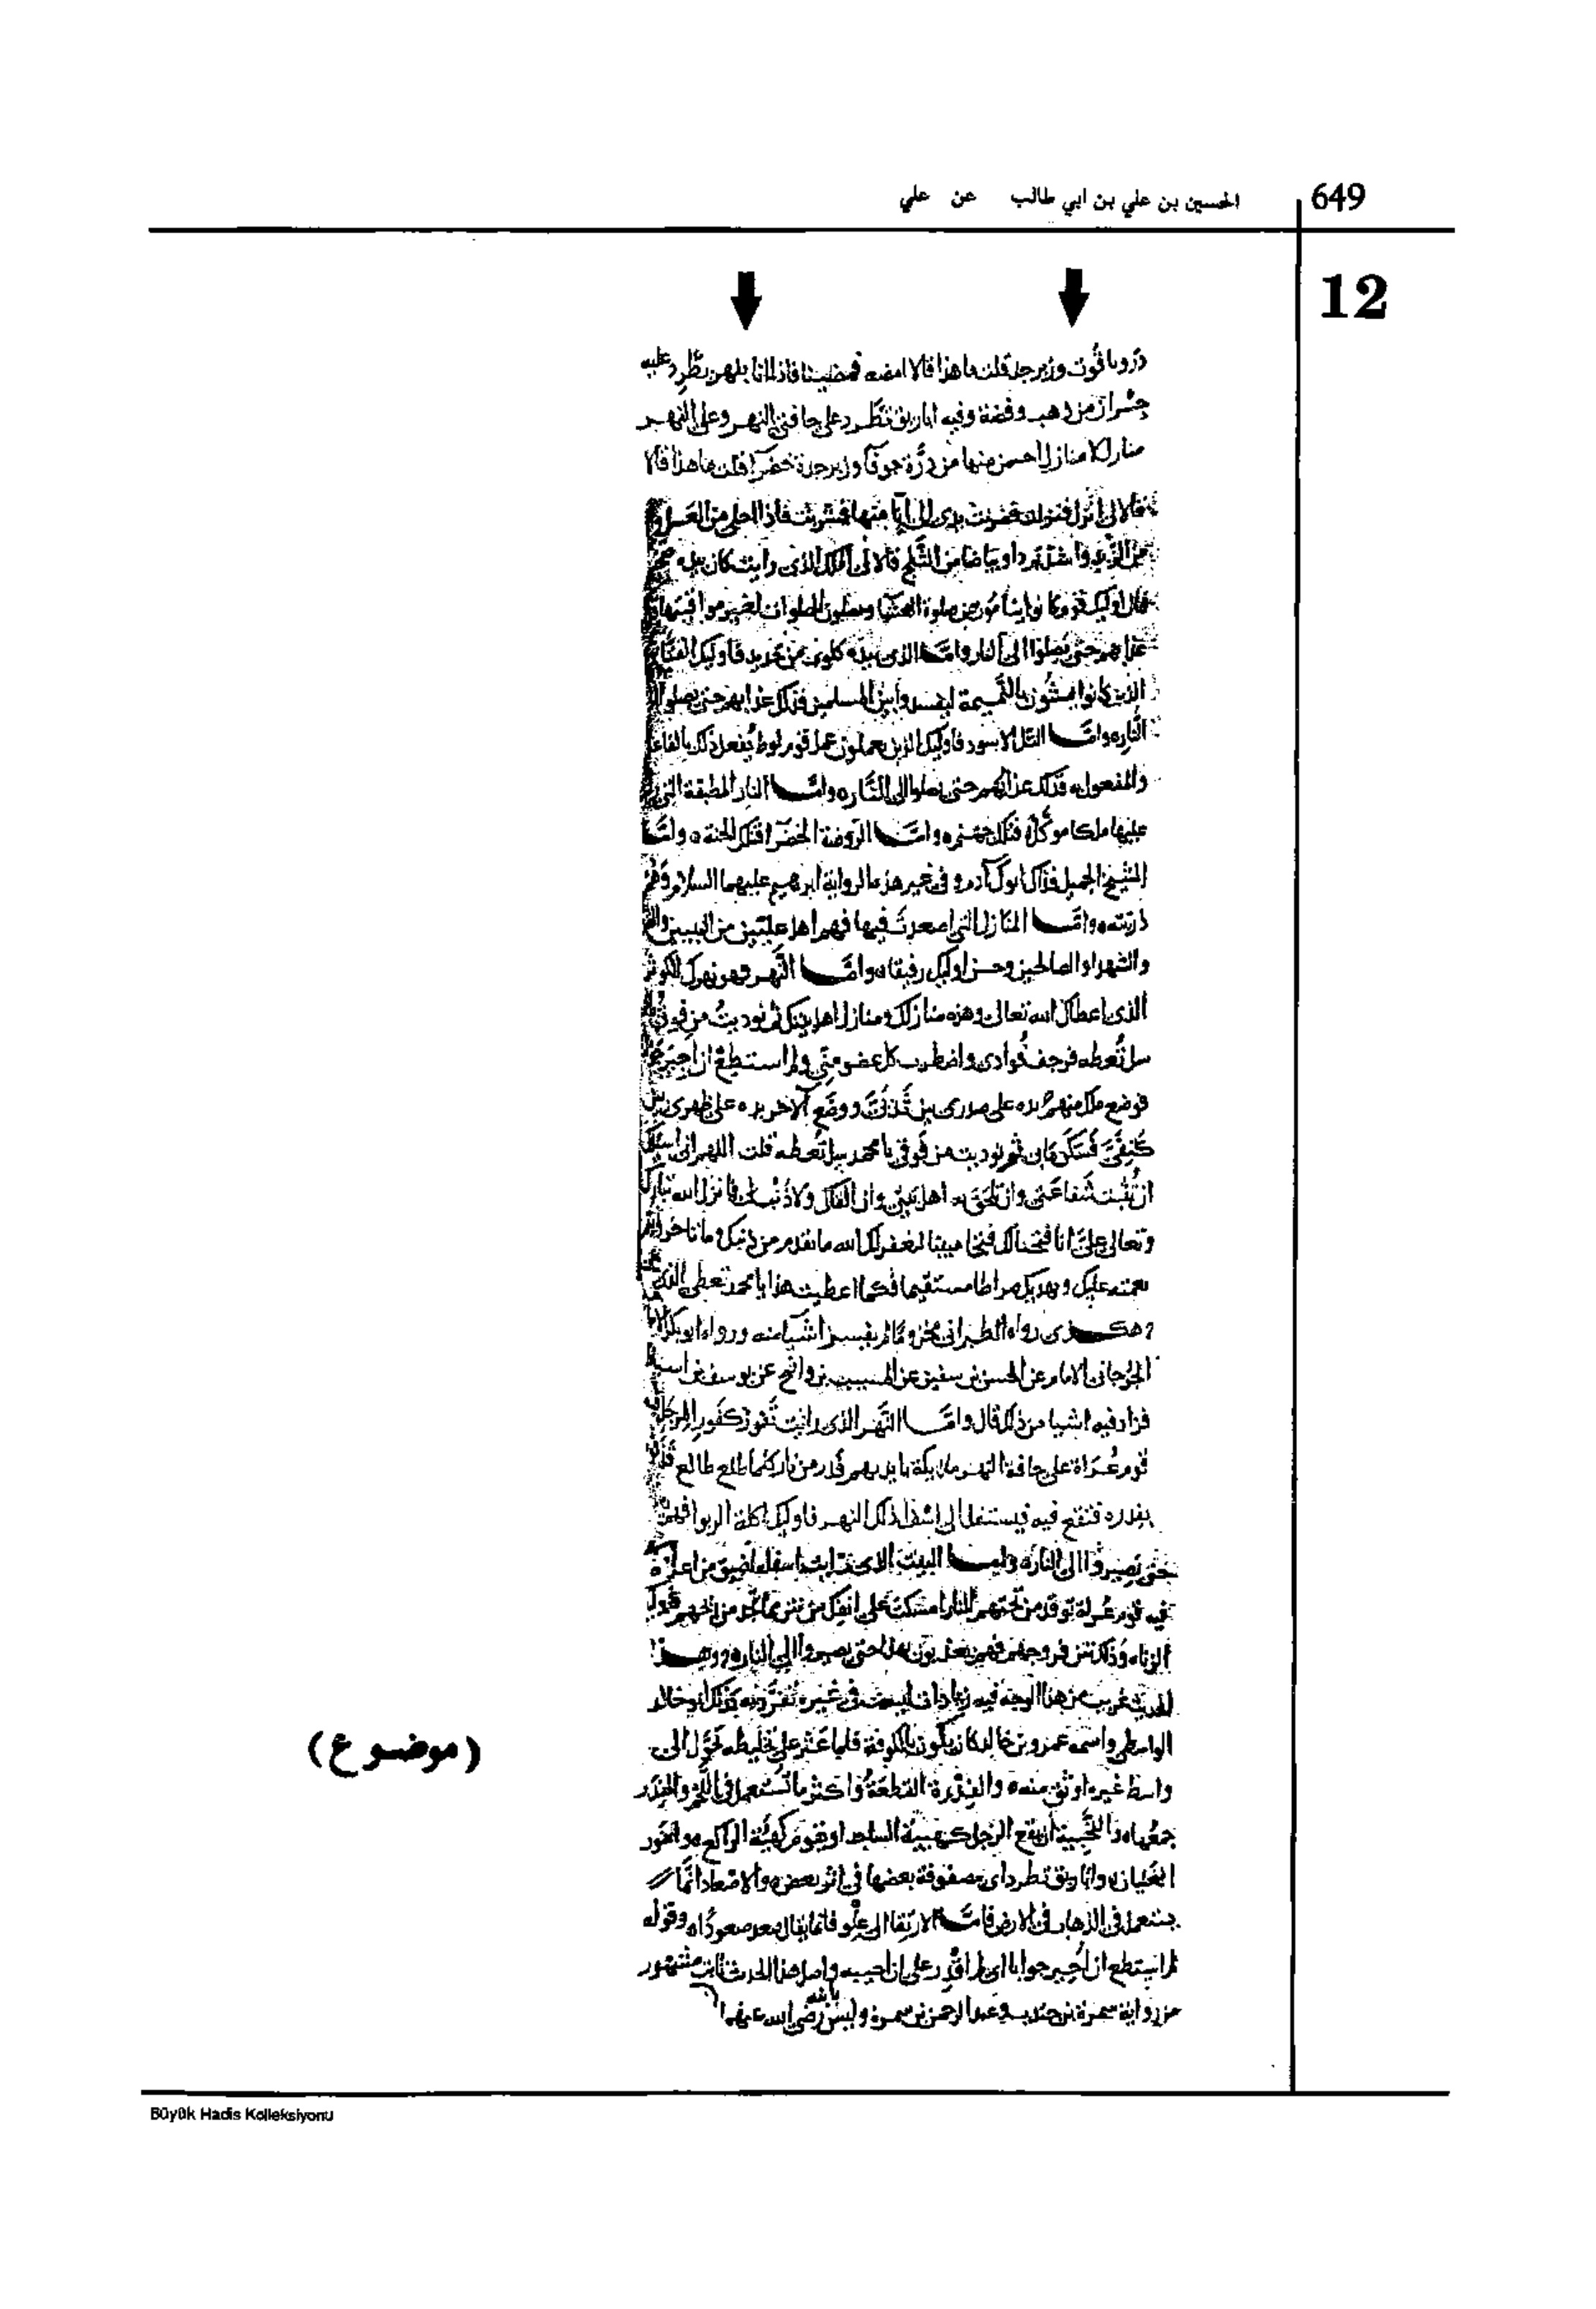 الحسين بن علي بن ابي طالب عن علي
649
12
در وياقوت وزبرجد قلت ما هذا قالا امضه فمضينا فاذا انا بنهر يطرد عليه
جسران من ذهب وفضة وفيه اباريق تطرد على حافتي النهر وعلى النهر
منازل لا منازل احسن منها من درة جوفا وزبرجدة خضرا قلت ما هذا قالا
قالا لي انزل فنزلت فضربت بيدي الى انا منها فشربت فاذا احلى من العسل
من الزبد واشد بردا وبياضا من الثلج قالا لي اما الذي رايت كان بيده
قال اوليك قوم كانوا ينامون عن صلوة العشا ويصلون الصلوات لغير مواقيتها
عذابهم حتى يصلوا الى النار واما الذي بيده كلوب من حديد فاوليك
الذين كانوا يمشون بالنميمة ليفسدوا بين المسلمين فذلك عذابهم حتى يصلوا
النار واما التل الاسود فاوليك الذين يعملون عمل قوم لوط يفعل ذلك بالفاعل
والمفعول به فذلك عذابهم حتى يصلوا الى النار واما النار المطبقة التي
عليها ملكا موكل فتلك جهنم واما الروضة الخضرا فتلك الجنة واما
الشيخ الجميل فذاك ابوك آدم وفي غير هذه الرواية ابرهيم عليهما السلام وهم
ذريته واما المنازل التي صعدت فيها فهم اهل عليين من النبيين
والشهدا والصالحين وحسن اوليك رفيقا واما النهر فهو نهرك الكوثر
الذي اعطاك الله تعالى وهذه منازلك ومنازل اهل بيتك ثم نوديت من فوقي
سل تعطه فرجف فوادي واضطرب كل عضو مني ولم استطع ان اجيب
فوضع ملك منهم يده على صدري بين ثديي ووضع الاخر يده على ظهري بين
كتفي فسكن ما بي ثم نوديت من فوقي يا محمد سل تعطه قلت اللهم اني اسلك
ان تثبت شفاعتي وان تلحق بي اهل بيتي وان القاك ولا ذنب لي فانزل الله تبارك
وتعالى علي انا فتحنا لك فتحا مبينا ليغفر لك الله ما تقدم من ذنبك وما تاخر
نعمته عليك ويهديك صراطا مستقيما فكما اعطيت هذا يا محمد تعطى
هكذى رواه الطبراني ولم يفسر اشيا منه ورواه ابو بكر
الجرجاني الامام عن الحسن بن سفين عن المسيب بن واضح عن يوسف بن اسباط
فزاد فيه اشيا من ذلك قال واما النهر الذي رايت تفور كفور المرجل
قوم عراة على حافة النهر ملايكة بايديهم قدر من نار كلما طلع طالع
بقدره فتقع فيه فيستغل الى اسفل ذلك النهر فاوليك اكلة الربوا
حتى يصيروا الى النار واما البيت الذي رايت اسفله اضيق من اعلاه
فيه قوم عراة توقد من تحتهم النار امسكت على انفك من نتن ما تجد من ريحهم
الزناه وذلك نتن فروجهم فهم يعذبون بهذا حتى يصيروا الى النار وهـذا
الحديث غريب من هذا الوجه فيه زيادات ليست في غيره تفرد به بذلك ابو خالد
الواسطي واسمه عمرو بن خالد كان يكون بالكوفة فلما عثر على تخليطه تحول الى
(موضوع)
واسط غيره اوثق منه والفدرة القطعة واكثر ما تستعمل في اللحم والفدر
جمعها والتجبية ان يقع الرجل كهيئة الساجد او يقوم كهيئة الراكع والفور
الغليان واباريق تطرد اي مصفوفة بعضها في اثر بعض والاصعاد انما
يستعمل في الذهاب في الارض فاما الارتفاع الى علو فانما يقال صعد صعودا وقوله
لم استطع ان احير جوابا اي لم اقدر على ان اجيب واصل هذا الحديث ثابت مشهور
من رواية سمرة بن جندب وعبد الرحمن بن سمرة رضي الله عنهما
Büyük Hadis Kolleksiyonu